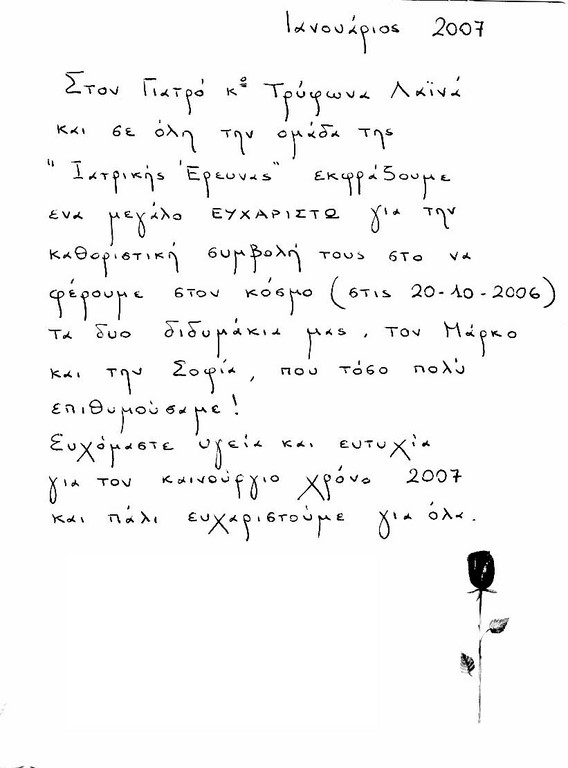 Ιανουάριος 2007
Στον Γιατρό κº Τρύφωνα Λαϊνά
και σε όλη την ομάδα της
"Ιατρικής Έρευνας" εκφράζουμε
ενα μεγάλο ΕΥΧΑΡΙΣΤΩ για την
καθοριστική συμβολή τους στο να
φέρουμε στον κόσμο (στις 20-10-2006)
τα δυο διδυμάκια μας, τον Μάρκο
και την Σοφία, που τόσο πολύ
επιθυμούσαμε!
Ευχόμαστε υγεία και ευτυχία
για τον καινούργιο χρόνο 2007
και πάλι ευχαριστούμε για όλα.